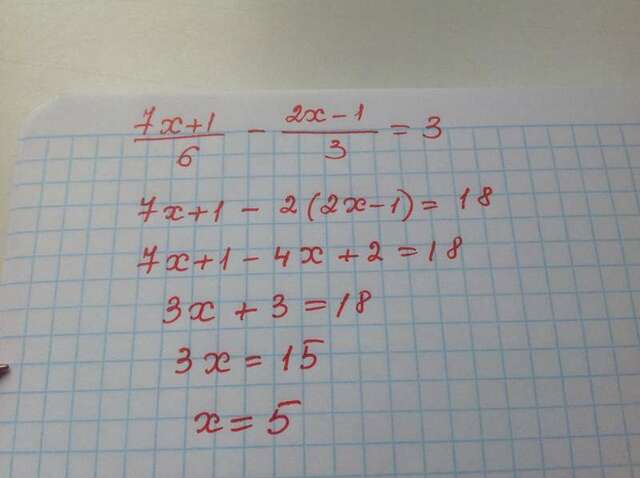 (7x+1)/6 - (2x-1)/3 = 3
7x+1 - 2(2x-1) = 18
7x+1 - 4x + 2 = 18
3x + 3 = 18
3x = 15
x = 5